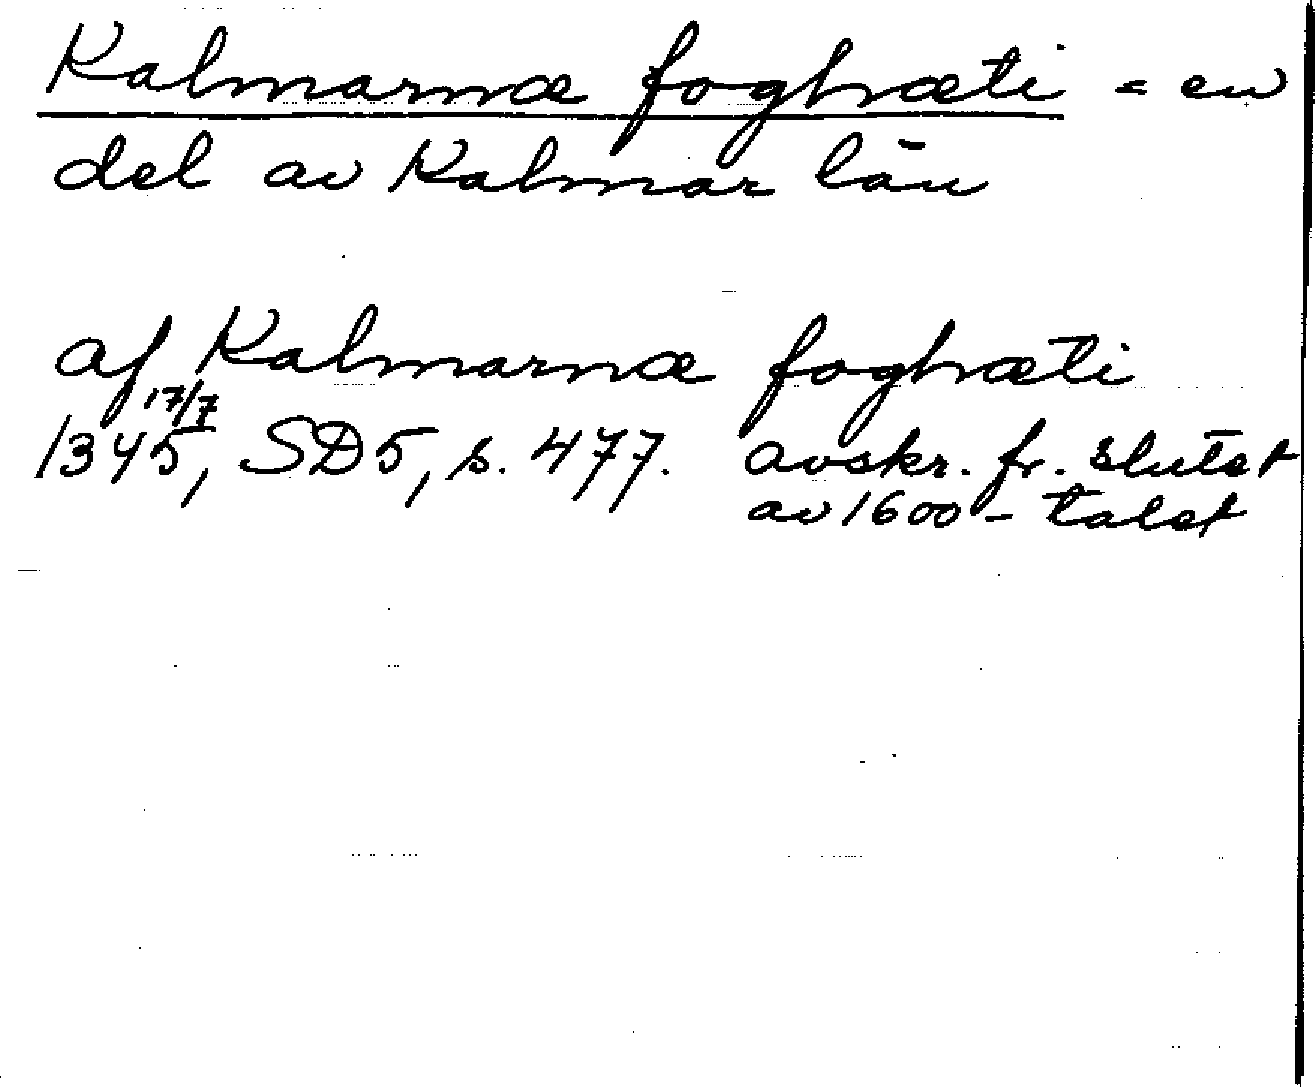 Kalmarnæ foghræti = en
del av Kalmar län
af Kalmarnæ foghræti
17/7
1345, SD5, s. 477. avskr. fr. slutet
av 1600-talet